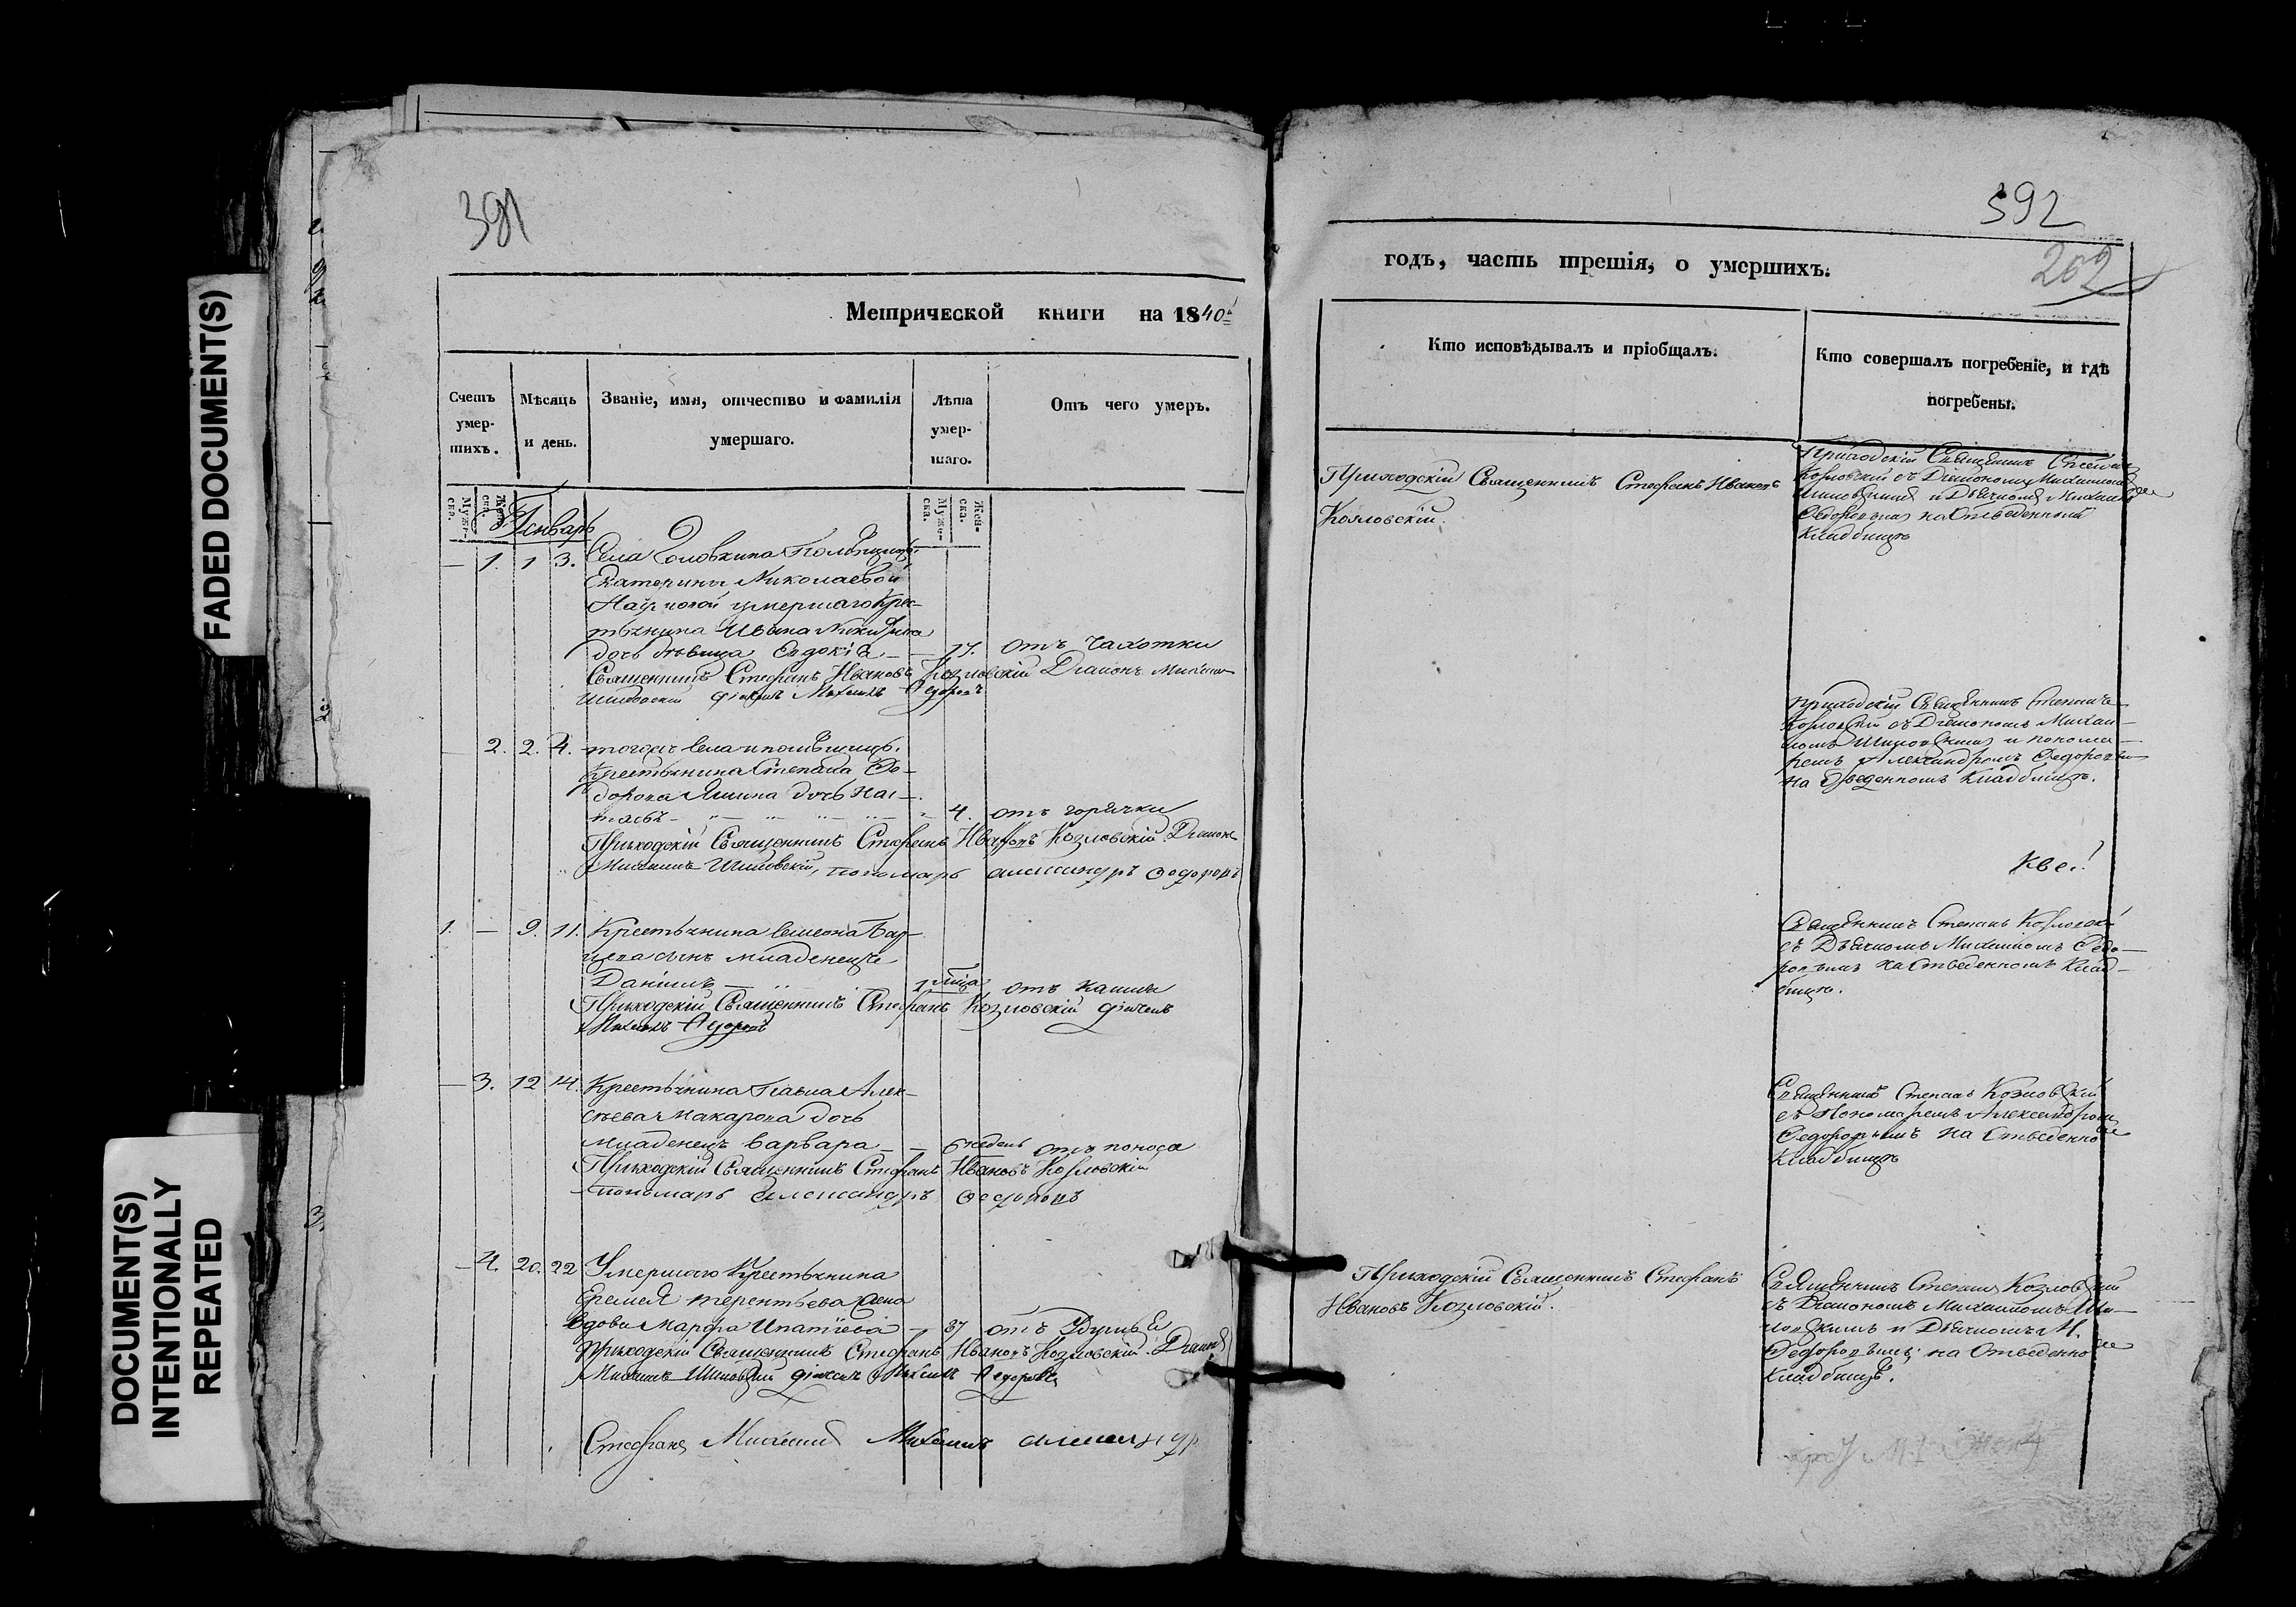 FADED DOCUMENT(S)
DOCUMENT(S)
INTENTIONALLY
REPEATED
391
Метрической книги на 1840й
Счетъ умер-шихъ.
Мѣсяцъ и день.
Званіе, имя, отчество и фамилія умершаго.
Лѣта умер-шаго.
Отъ чего умеръ.
Муже-ска.
Жен-ска.
Муже-ска.
Жен-ска.
Генварь
— 1. 1 3. Села Головкина Помѣщицы
Екатерины Николаевой
умершаго Крес-
тьянина Ивана Никифорова
дочь дѣвица Евдокія — 17. отъ чахотки
Священникъ Стефанъ Ивановъ Козловскій Діаконъ Михаилъ
Шиловскій дьячекъ Михаилъ Ѳедоровъ
— 2. 2. 4. тогожъ села и помѣщицы
Крестьянина Степана Ѳе-
дорова Яшина дочь Нас-
тасья 4. отъ горячки
Приходскій Священникъ Стефанъ Ивановъ Козловскій Діаконъ
Михаилъ Шиловскій, пономарь Александръ Ѳедоровъ
1. — 9. 11. Крестьянина Семена
сынъ младенецъ
Даніилъ 1 мѣсяца отъ кашля
Приходскій Священникъ Стефанъ Козловскій дьячекъ
Михаилъ Ѳедоровъ
— 3. 12 14. Крестьянина Павла Алек-
сѣева Макарова дочь
младенецъ Варвара — 6 недель отъ поноса
Приходскій Священникъ Стефанъ Ивановъ Козловскій
пономарь Александръ Ѳедоровъ
— 4. 20. 22 Умершаго Крестьянина
Еремея Терентьева жена
вдова Марфа Ипатіева — 37 отъ
Приходскій Священникъ Стефанъ Ивановъ Козловскій Діаконъ
Михаилъ Шиловскій дьячекъ Михаилъ Ѳедоровъ
Стефанъ Михаилъ Михаилъ Александръ
392
202
годъ, часть третія, о умершихъ.
Кто исповѣдывалъ и пріобщалъ.
Кто совершалъ погребеніе, и гдѣ погребены.
Приходскій Священникъ Стефанъ Ивановъ
Козловскій.
Приходскій Священникъ Степанъ
Козловскій съ Діакономъ Михаиломъ
Шиловскимъ и Дьячкомъ Михаиломъ
Ѳедоровымъ на Отведенномъ
Кладбищѣ
Приходскій Священникъ Степанъ
Козловскій съ Діакономъ Михаи-
ломъ Шиловскимъ и понома-
ремъ Александромъ Ѳедоровымъ
на Отведенномъ Кладбищѣ.
Священникъ Степанъ Козловскій
съ Дьячкомъ Михаиломъ Ѳедо-
ровымъ на Отведенномъ Клад-
бищѣ.
Священникъ Степанъ Козловскій
съ Пономаремъ Александромъ
Ѳедоровымъ на Отведенномъ
Кладбищѣ
Приходскій Священникъ Стефанъ
Ивановъ Козловскій.
Священникъ Степанъ Козловскій
съ Діакономъ Михаиломъ Ши-
ловскимъ и Дьячкомъ М.
Ѳедоровымъ на Отведенномъ
Кладбищѣ.